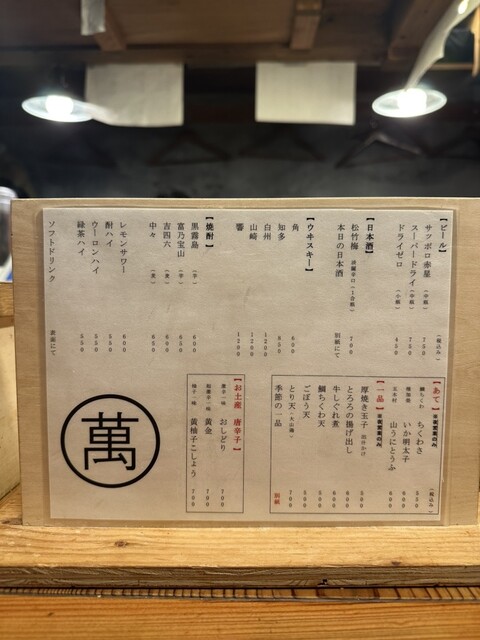 【ビール】 (税込み)
サッポロ赤星 (中瓶) 750
スーパードライ (中瓶) 750
ドライゼロ (小瓶) 450
【日本酒】
松竹梅 淡麗辛口 (1合瓶) 700
本日の日本酒 別紙にて
【ウヰスキー】
角 600
知多 850
白州 1200
山崎 1200
響 1200
【焼酎】
黒霧島 (芋) 600
富乃宝山 (芋) 650
吉四六 (麦) 650
中々 (麦) 600
レモンサワー 600
酎ハイ 550
ウーロンハイ 550
緑茶ハイ 550
ソフトドリンク 裏面にて
【あて】 (税込み)
鯛ちくわ ちくわさ 550
いか明太子 600
五木村 山うにとうふ 600
【一品】
厚焼き玉子 500
とろろの揚げ出し 500
牛しぐれ煮 600
鯛ちくわ天 500
ごぼう天 500
とり天 (大山鶏) 700
季節の一品 別紙
【お土産 唐辛子】
唐辛子一味 おしどり 700
黄金 700
柚子一味 黄柚子こしょう 700
萬